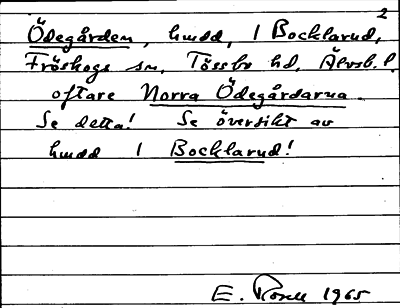 2
Ödegården, hmdd, 1 Bocklarud,
Fröskogs sn, Tössbo hd, Älvsb. l.
oftare Norra Ödegårdarna.
Se detta! Se översikt av
hmdd 1 Bocklarud!
E. 1965